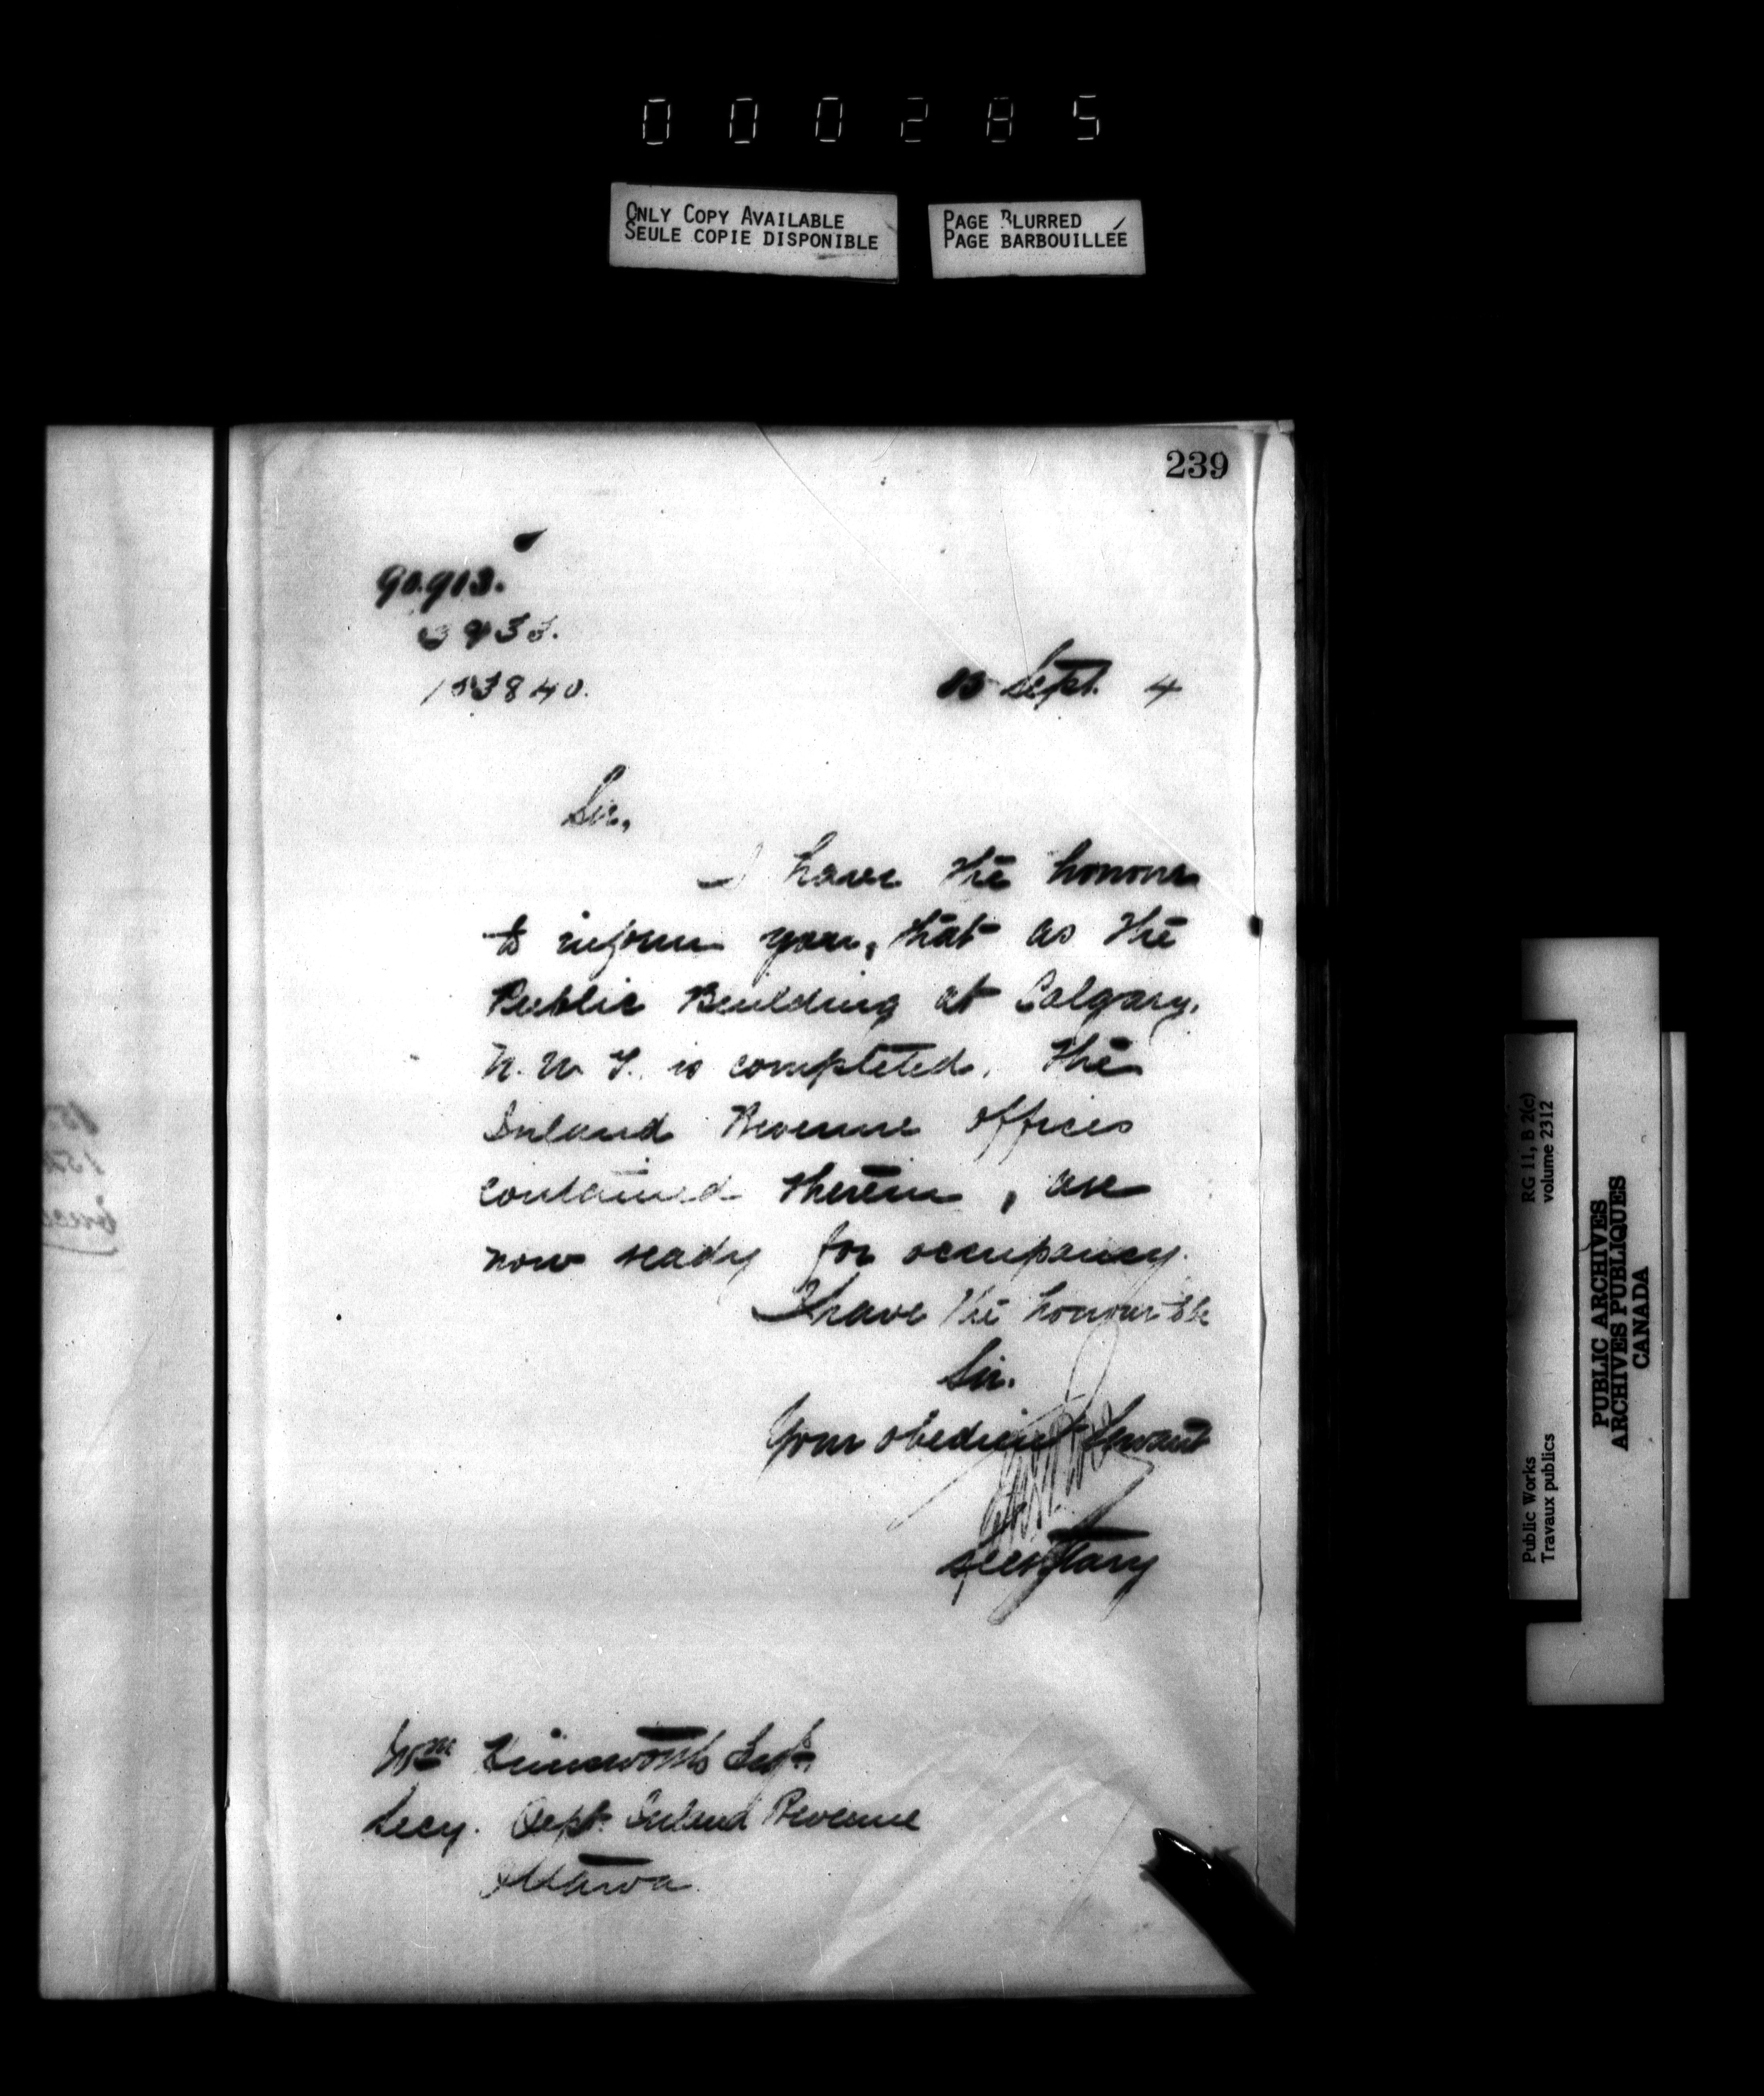 000285
ONLY COPY AVAILABLE
SEULE COPIE DISPONIBLE
PAGE BLURRED
PAGE BARBOUILLÉE
239
90.913.
153840.
Sept. 4
Sir,
I have the honour
to inform you, that as the
Public Building at Calgary,
N. W. T. is completed, the
Inland Revenue Offices
contained therein, are
now ready for occupancy.
I have the honour to be
Sir.
Your obedient Servant
Secretary
Wm Himsworth Esq.
Secy. Dept. Inland Revenue
Ottawa.
RG 11, B 2(c)
volume 2312
Public Works
Travaux publics
PUBLIC ARCHIVES
ARCHIVES PUBLIQUES
CANADA